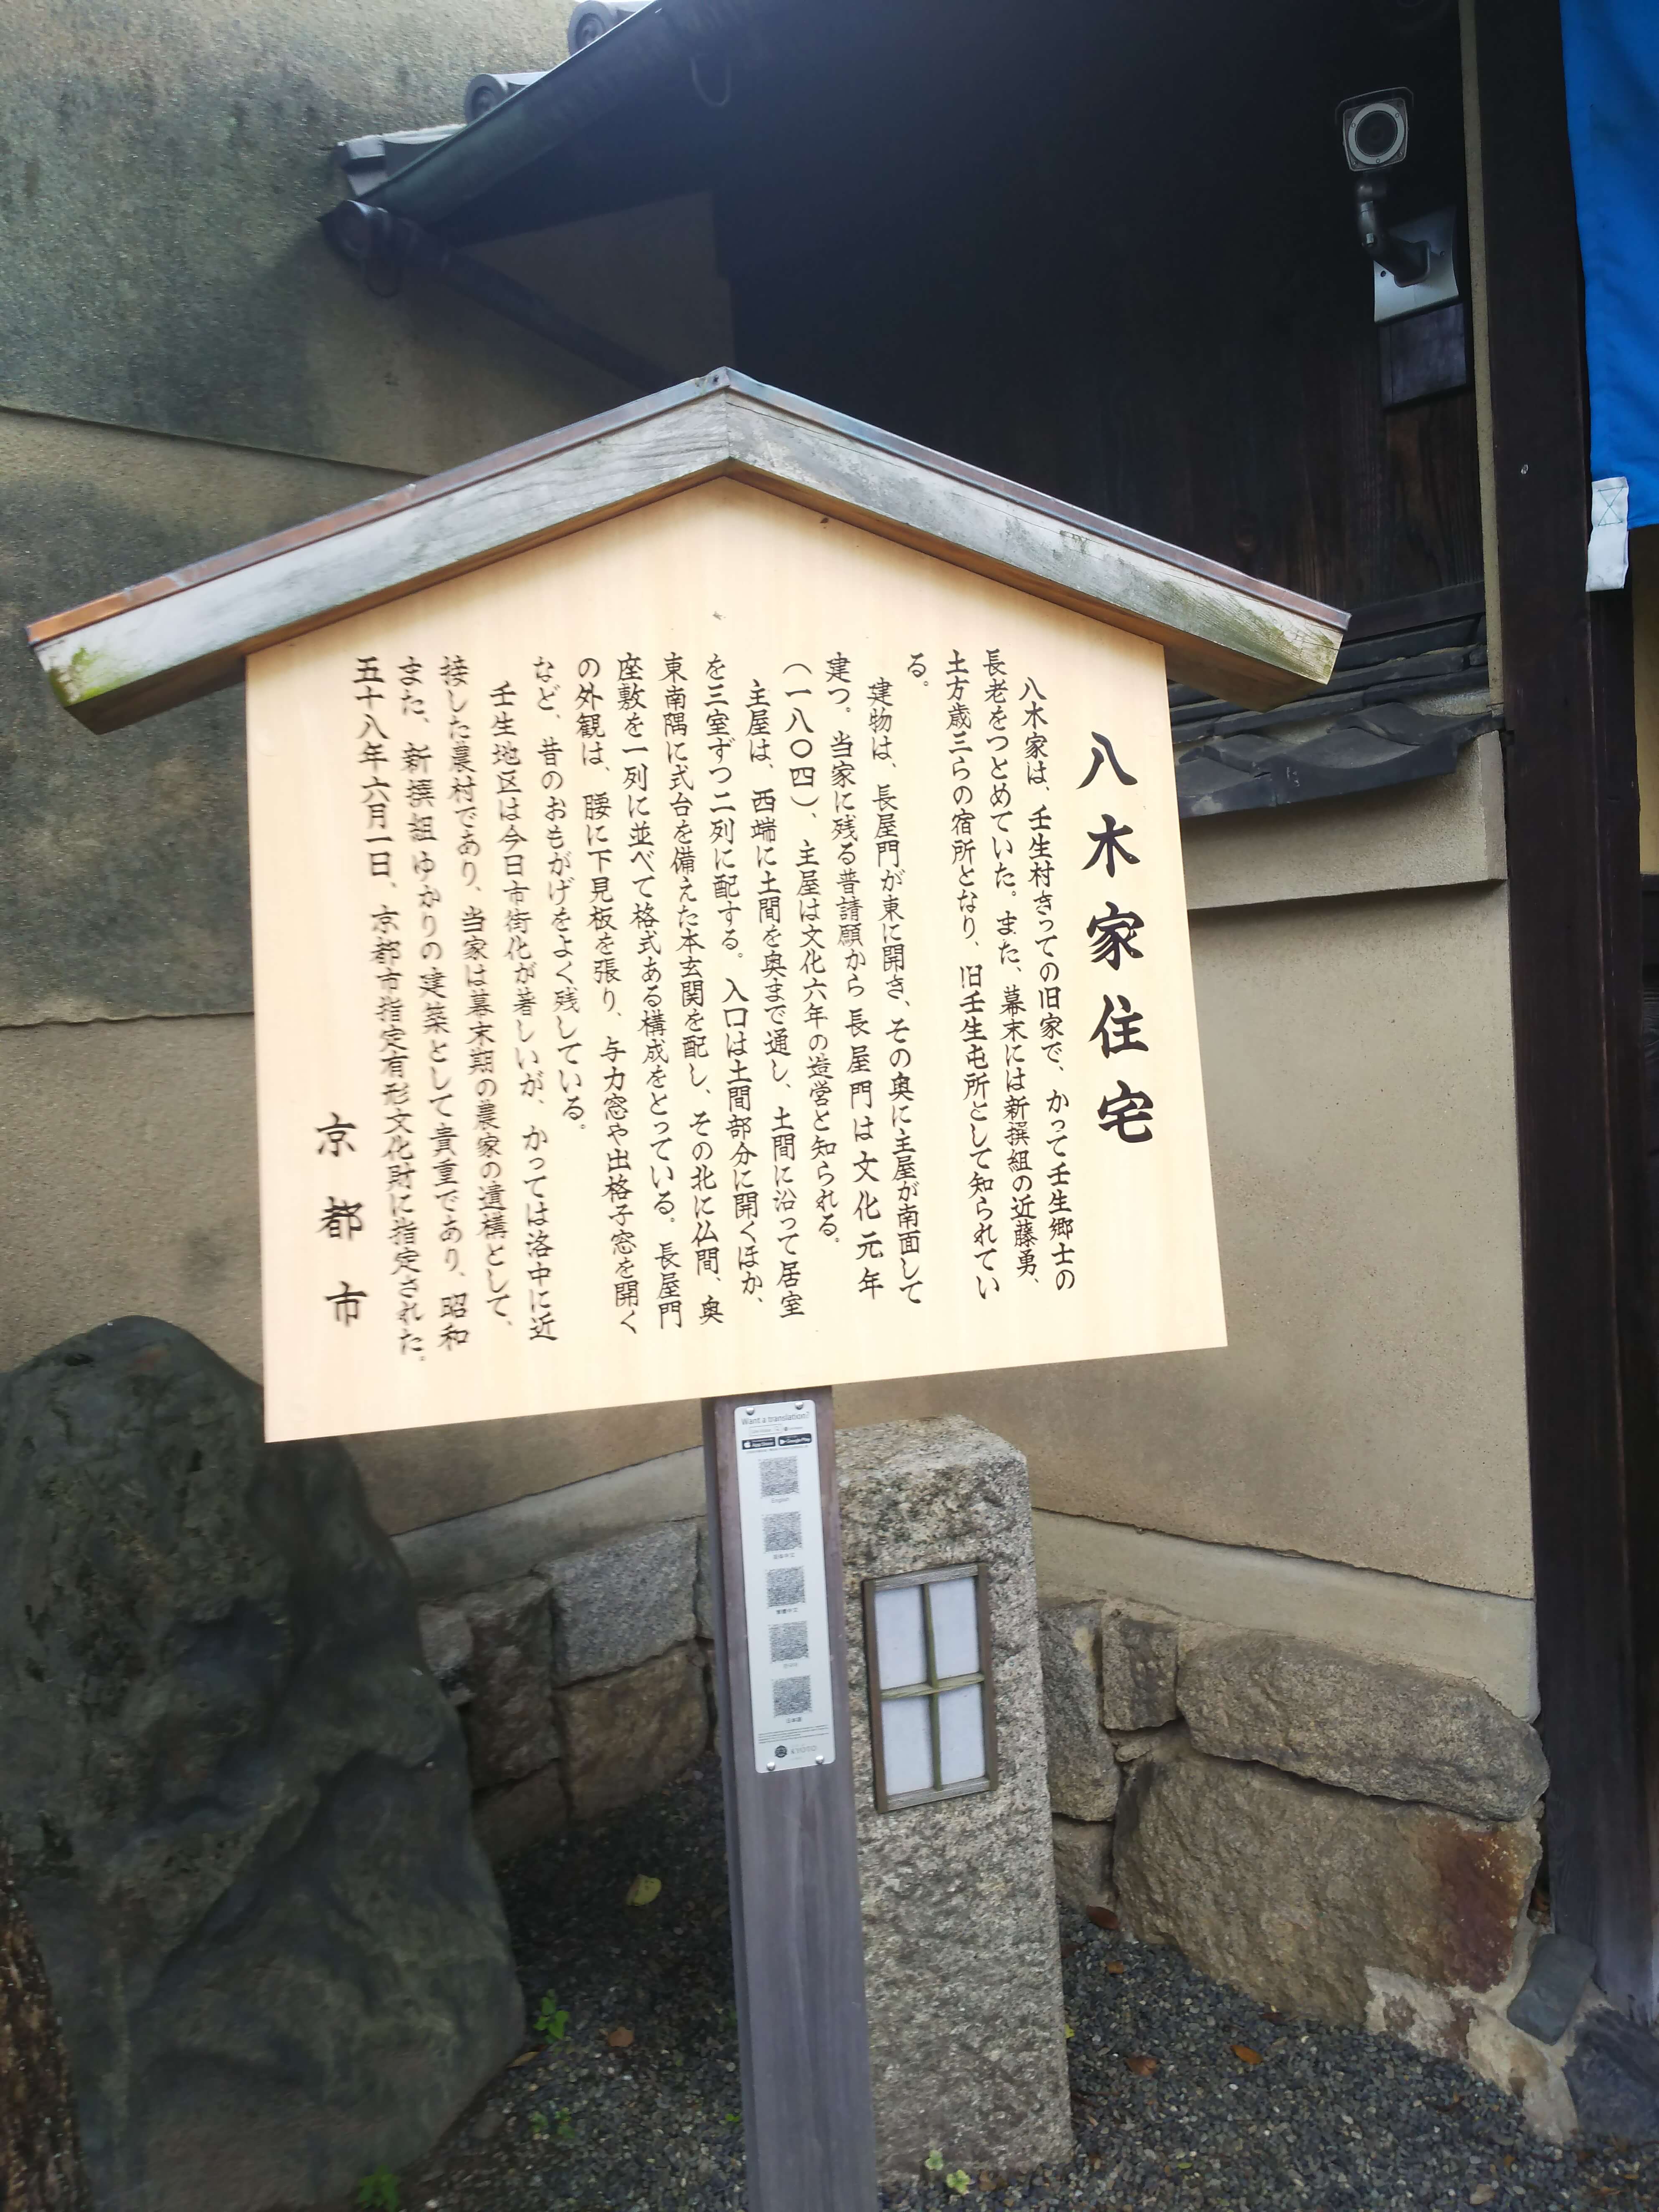 八木家住宅
八木家は、壬生村きっての旧家で、かつて壬生郷士の
長老をつとめていた。また、幕末には新撰組の近藤勇、
土方歳三らの宿所となり、旧壬生屯所として知られてい
る。
建物は、長屋門が東に開き、その奥に主屋が南面して
建つ。当家に残る普請願から長屋門は文化元年
(一八〇四)、主屋は文化六年の造営と知られる。
主屋は、西端に土間を奥まで通し、土間に沿って居室
を三室ずつ二列に配する。入口は土間部分に開くほか、
東南隅に式台を備えた本玄関を配し、その北に仏間、奥
座敷を一列に並べて格式ある構成をとっている。長屋門
の外観は、腰に下見板を張り、与力窓や出格子窓を開く
など、昔のおもがげをよく残している。
壬生地区は今日市街化が著しいが、かつては洛中に近
接した農村であり、当家は幕末期の農家の遺構として、
また、新撰組ゆかりの建築として貴重であり、昭和
五十八年六月一日、京都市指定有形文化財に指定された。
京都市
Want a translation?
App Store Google Play
English
简体中文
繁體中文
한국어
日本語
KYOTO